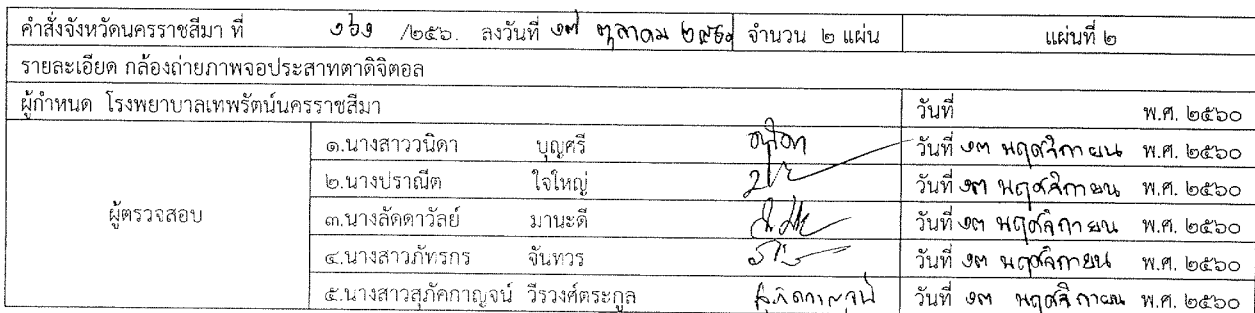 คำสั่งจังหวัดนครราชสีมา ที่ ๑๖๑ /๒๕๖๐. ลงวันที่ ๑๗ ตุลาคม ๒๕๖๐ จำนวน ๒ แผ่น แผ่นที่ ๒
รายละเอียด กล้องถ่ายภาพจอประสาทตาดิจิตอล
ผู้กำหนด โรงพยาบาลเทพรัตน์นครราชสีมา วันที่ พ.ศ. ๒๕๖๐
ผู้ตรวจสอบ
๑.นางสาววนิดา บุญศรี วันที่ ๑๓ พฤศจิกายน พ.ศ. ๒๕๖๐
๒.นางปราณีต ใจใหญ่ วันที่ ๑๓ พฤศจิกายน พ.ศ. ๒๕๖๐
๓.นางลัดดาวัลย์ มานะดี วันที่ ๑๓ พฤศจิกายน พ.ศ. ๒๕๖๐
๔.นางสาวภัทรกร จันทวร วันที่ ๑๓ พฤศจิกายน พ.ศ. ๒๕๖๐
๕.นางสาวสุภัคกาญจน์ วีรวงศ์ตระกูล สุภัคกาญจน์ วันที่ ๑๓ พฤศจิกายน พ.ศ. ๒๕๖๐